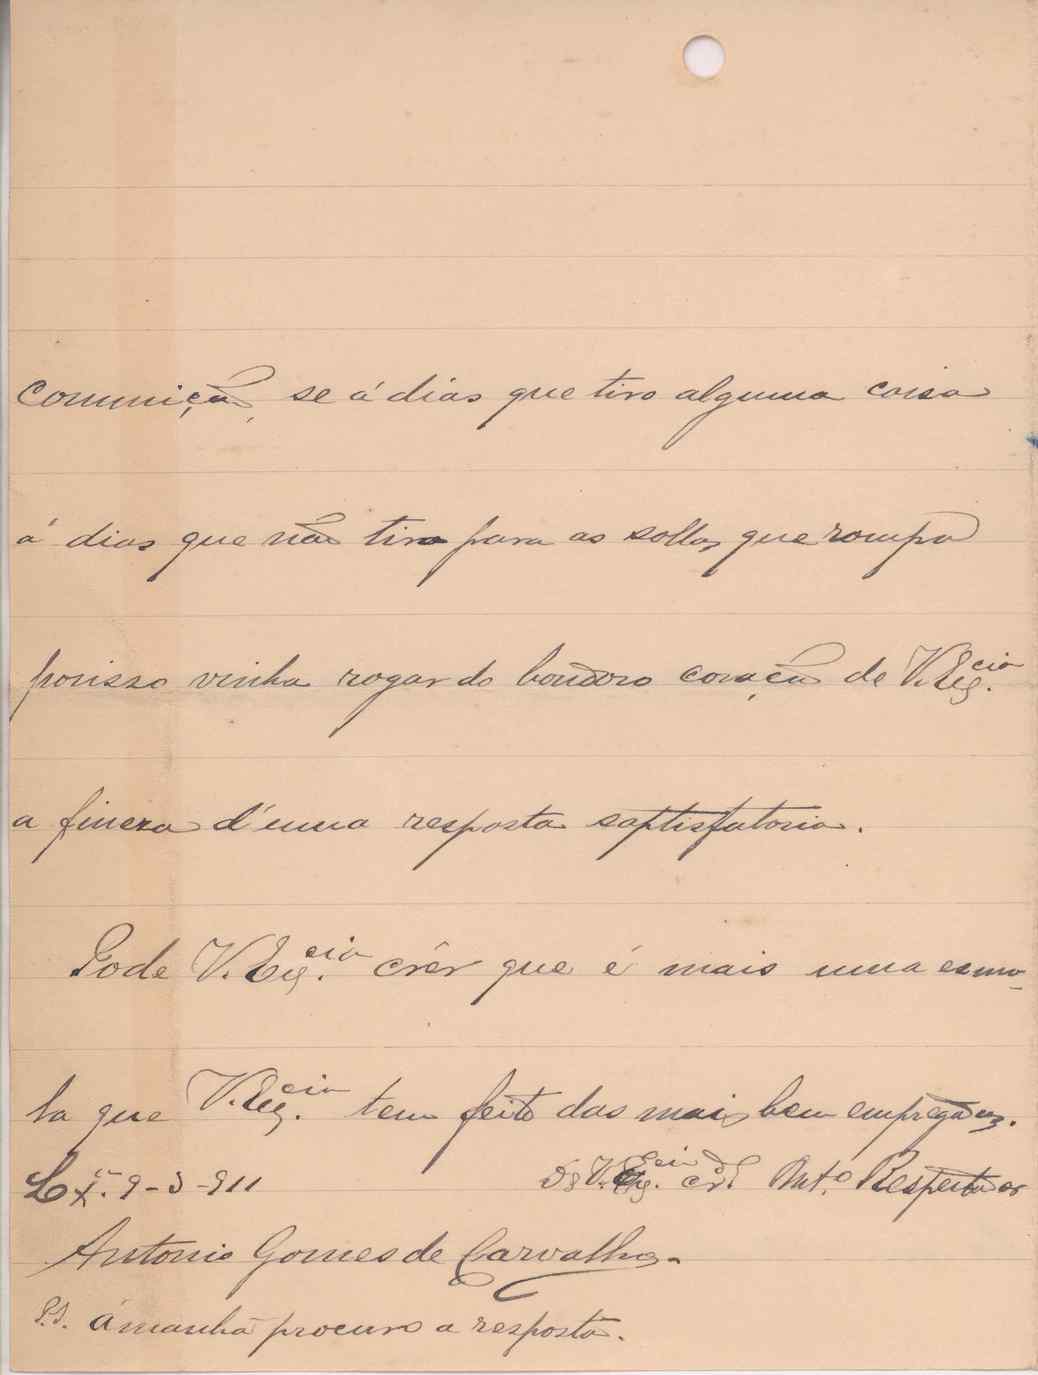 comunição, se á dias que tiro alguma coisa
á dias que não tiro para as sollas que rompo
porisso vinha rogar do bondoso coração de V. Exª.cia
a fineza d'uma resposta saptisfatoria.
Pode V. Ex.cia crêr que é mais uma esmo-
la que V. Ex.cia tem feito das mais bem empregadas.
Lx.ª 9-3-911 De V. Ex.cia cr.º Mt.º Respeitador
Antonio Gomes de Carvalho.
P.S. ámanhã procuro a resposta.